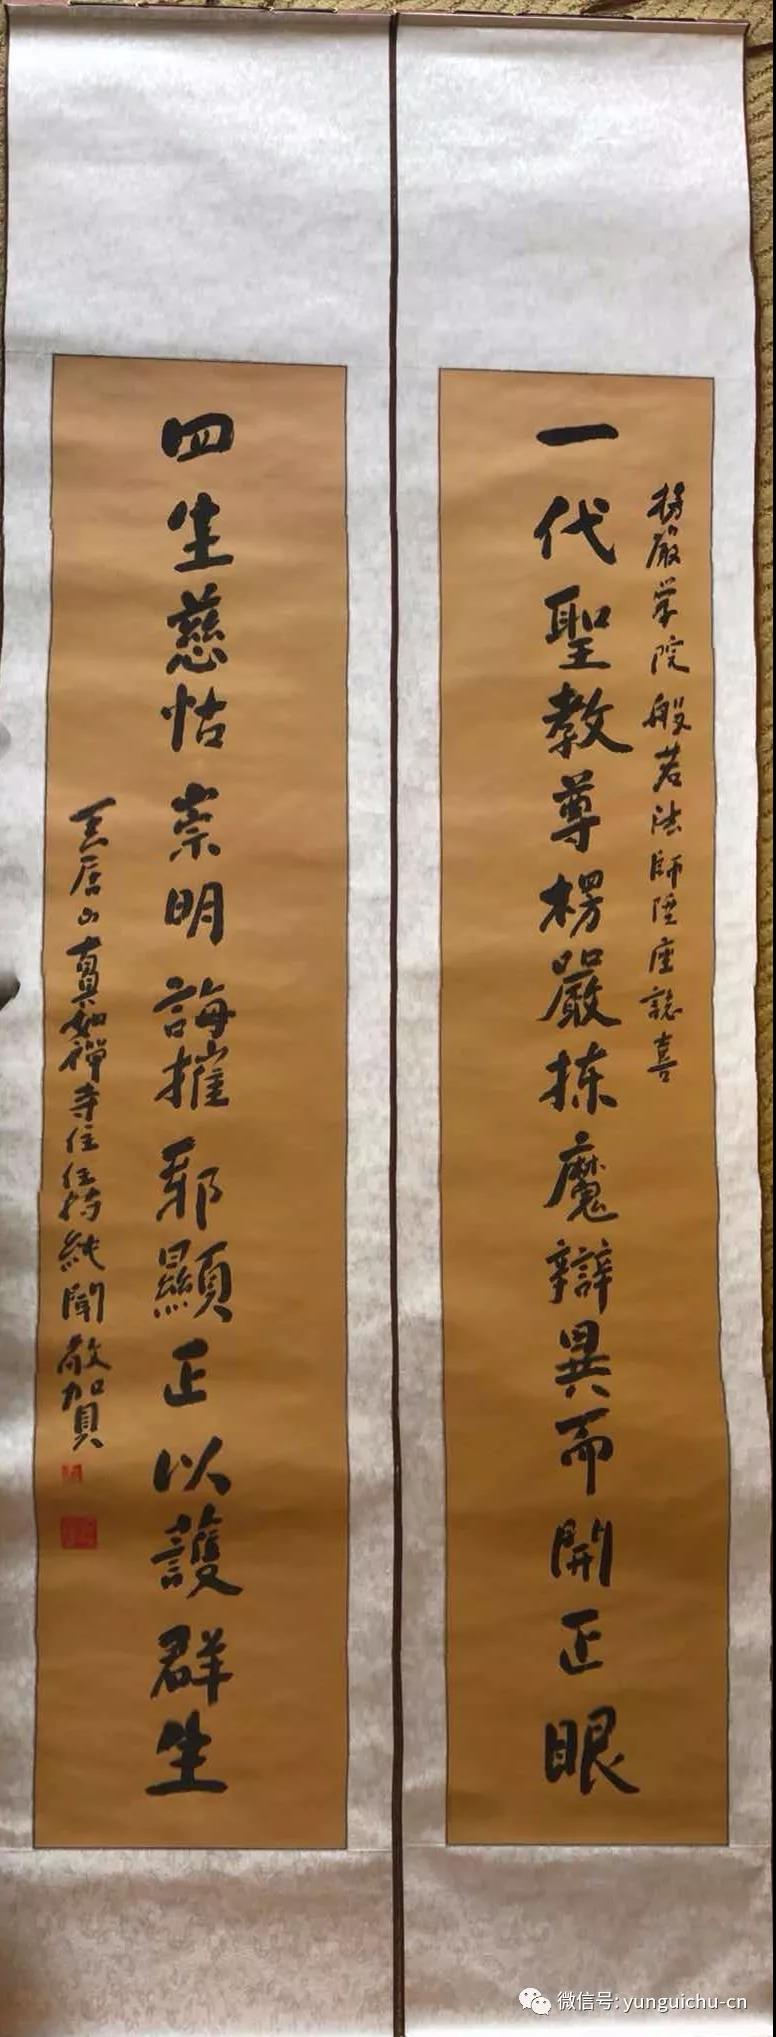 楞嚴学院般若法師陞座誌喜
一代聖教尊楞嚴拣魔辯異而開正眼
四生慈怙崇明誨摧邪顯正以護群生
雲居山真如禪寺住住持純聞敬賀
微信号: yunguichu-cn